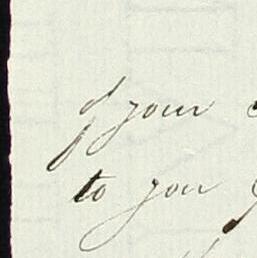 of your
to you